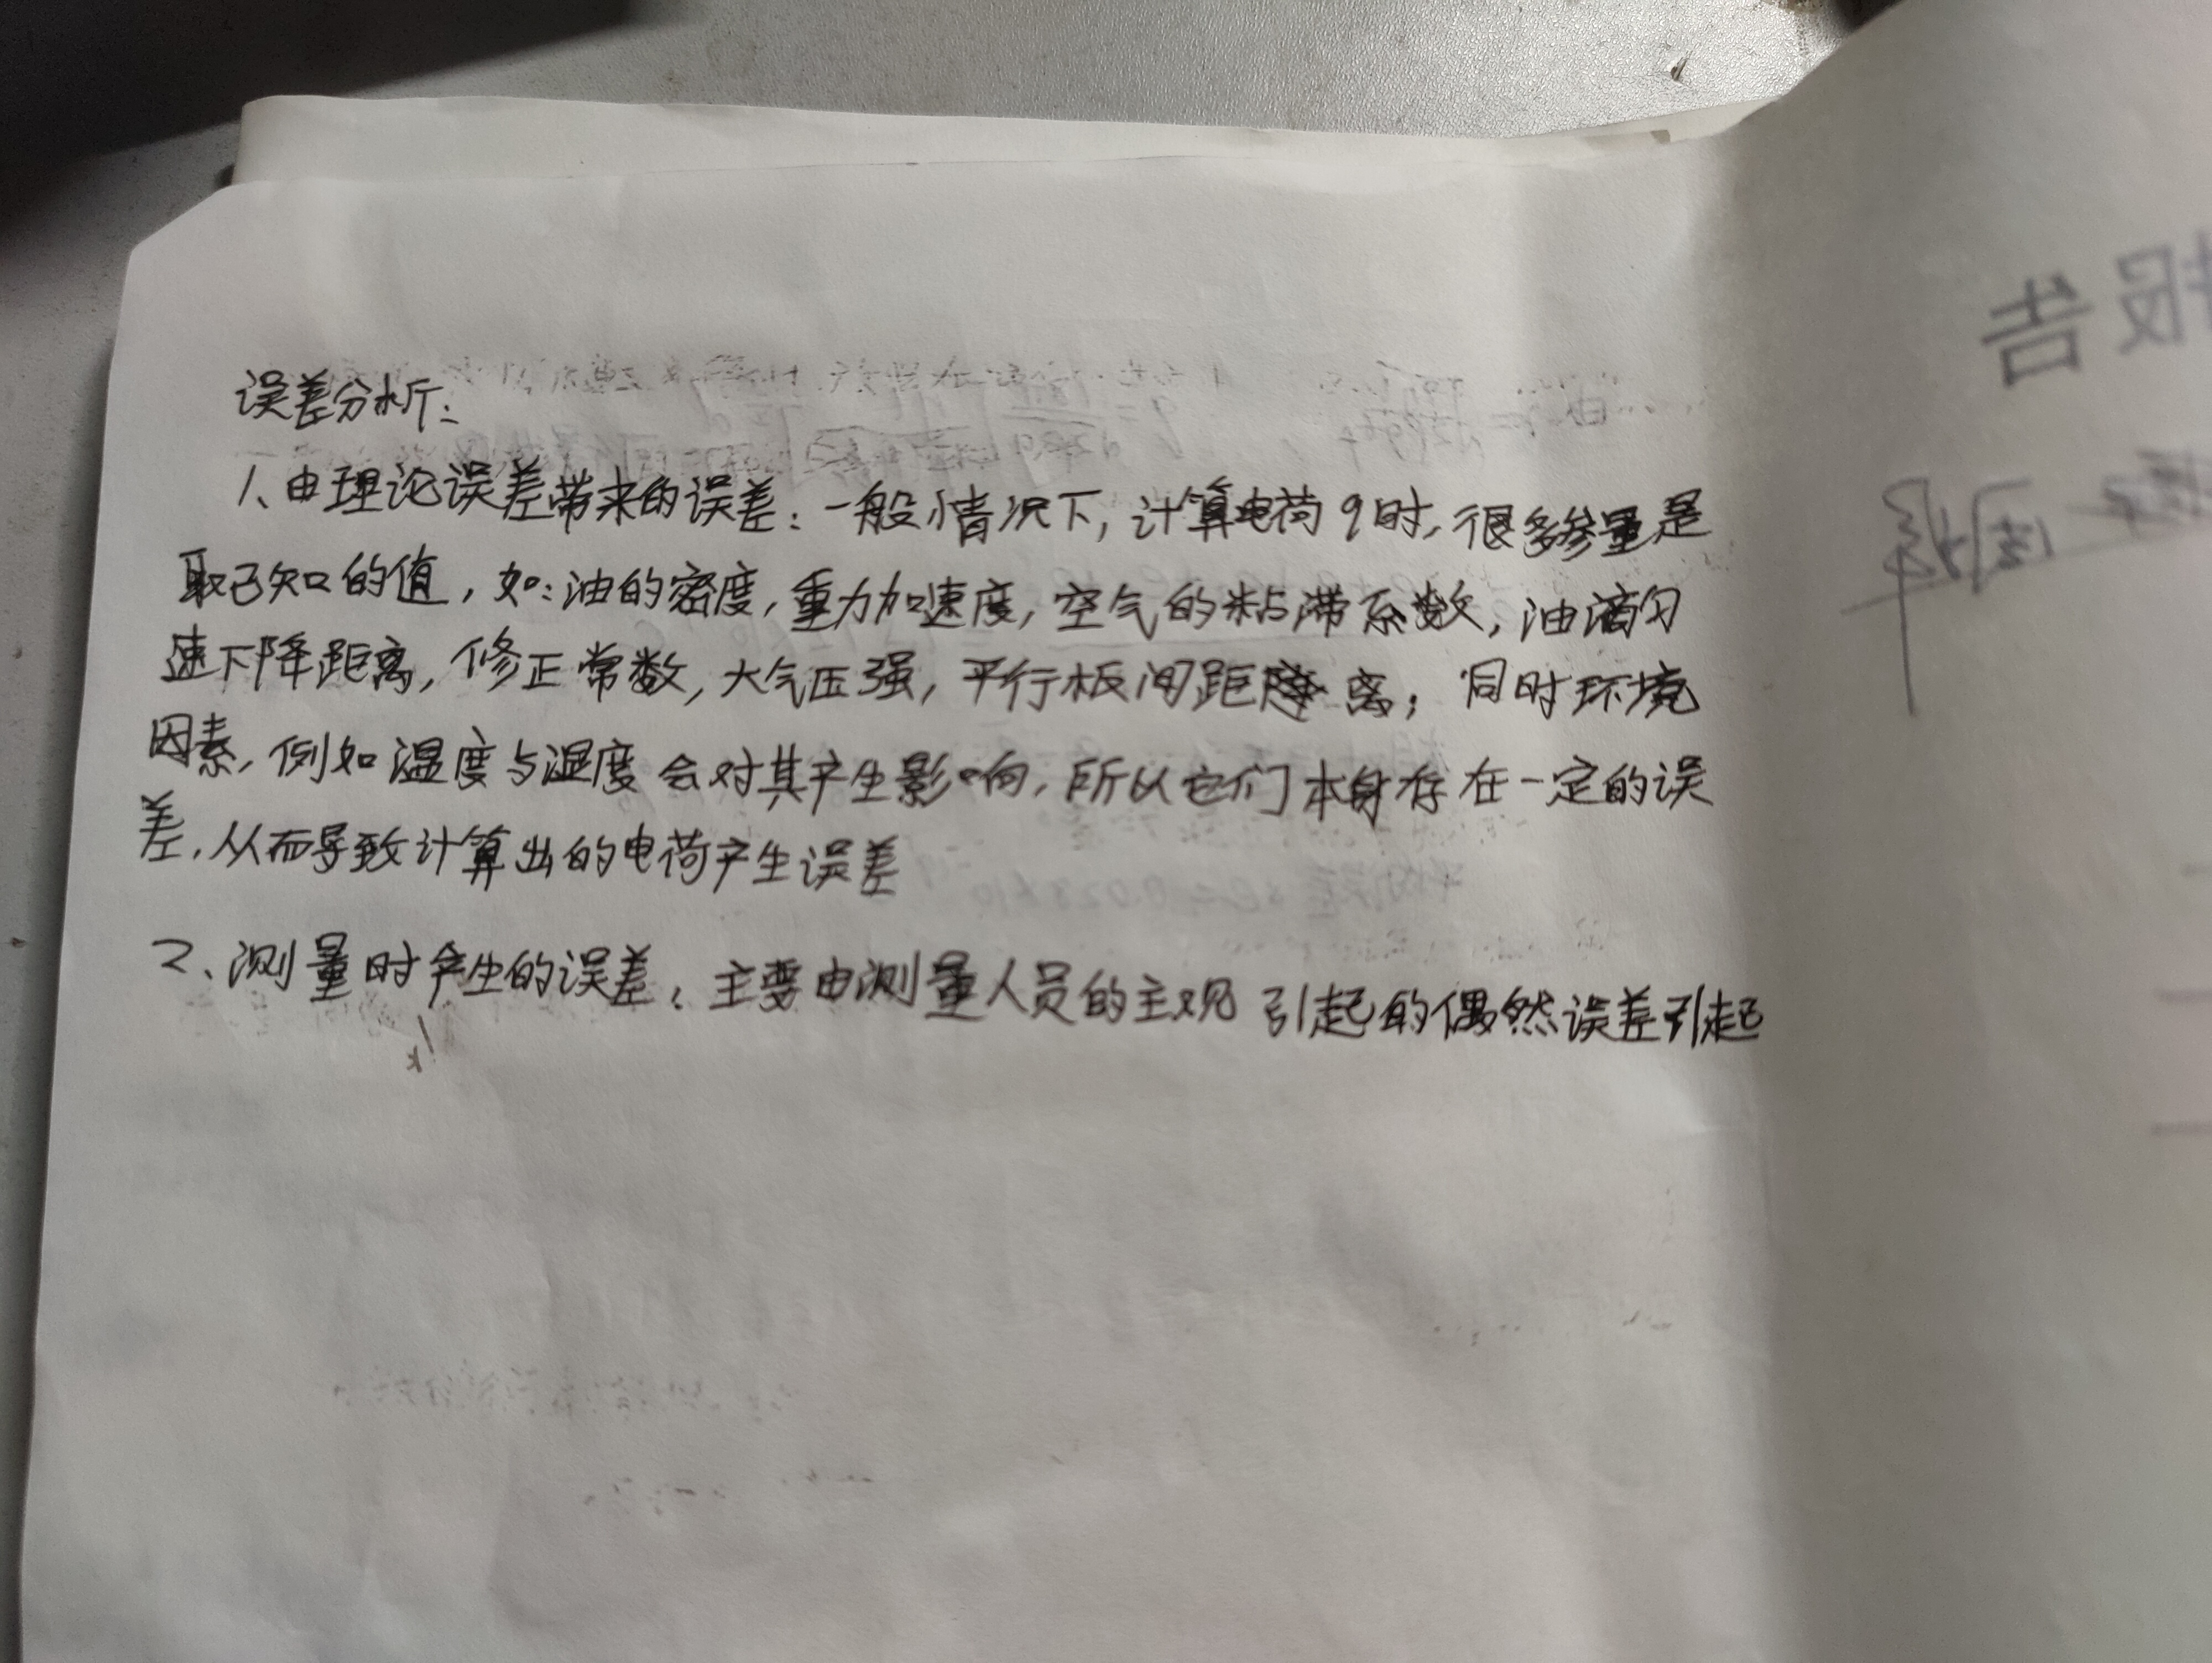 误差分析：
1、由理论误差带来的误差：一般情况下，计算电荷q时，很多参量是
取已知的值，如：油的密度，重力加速度，空气的粘滞系数，油滴匀
速下降距离，修正常数，大气压强，平行板间距离；同时环境
因素，例如温度与湿度会对其产生影响，所以它们本身存在一定的误
差，从而导致计算出的电荷产生误差
2、测量时产生的误差：主要由测量人员的主观引起的偶然误差引起
报告